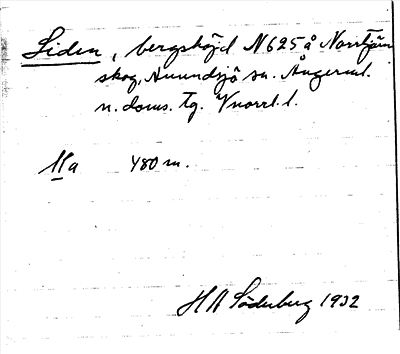 Liden, bergshöjd N 625 å Norrtjärn
skog, Anundsjö sn. Ångerml.
n. doms. tg. Vnorrl. l.
11a 480 m.
H A Söderberg 1932